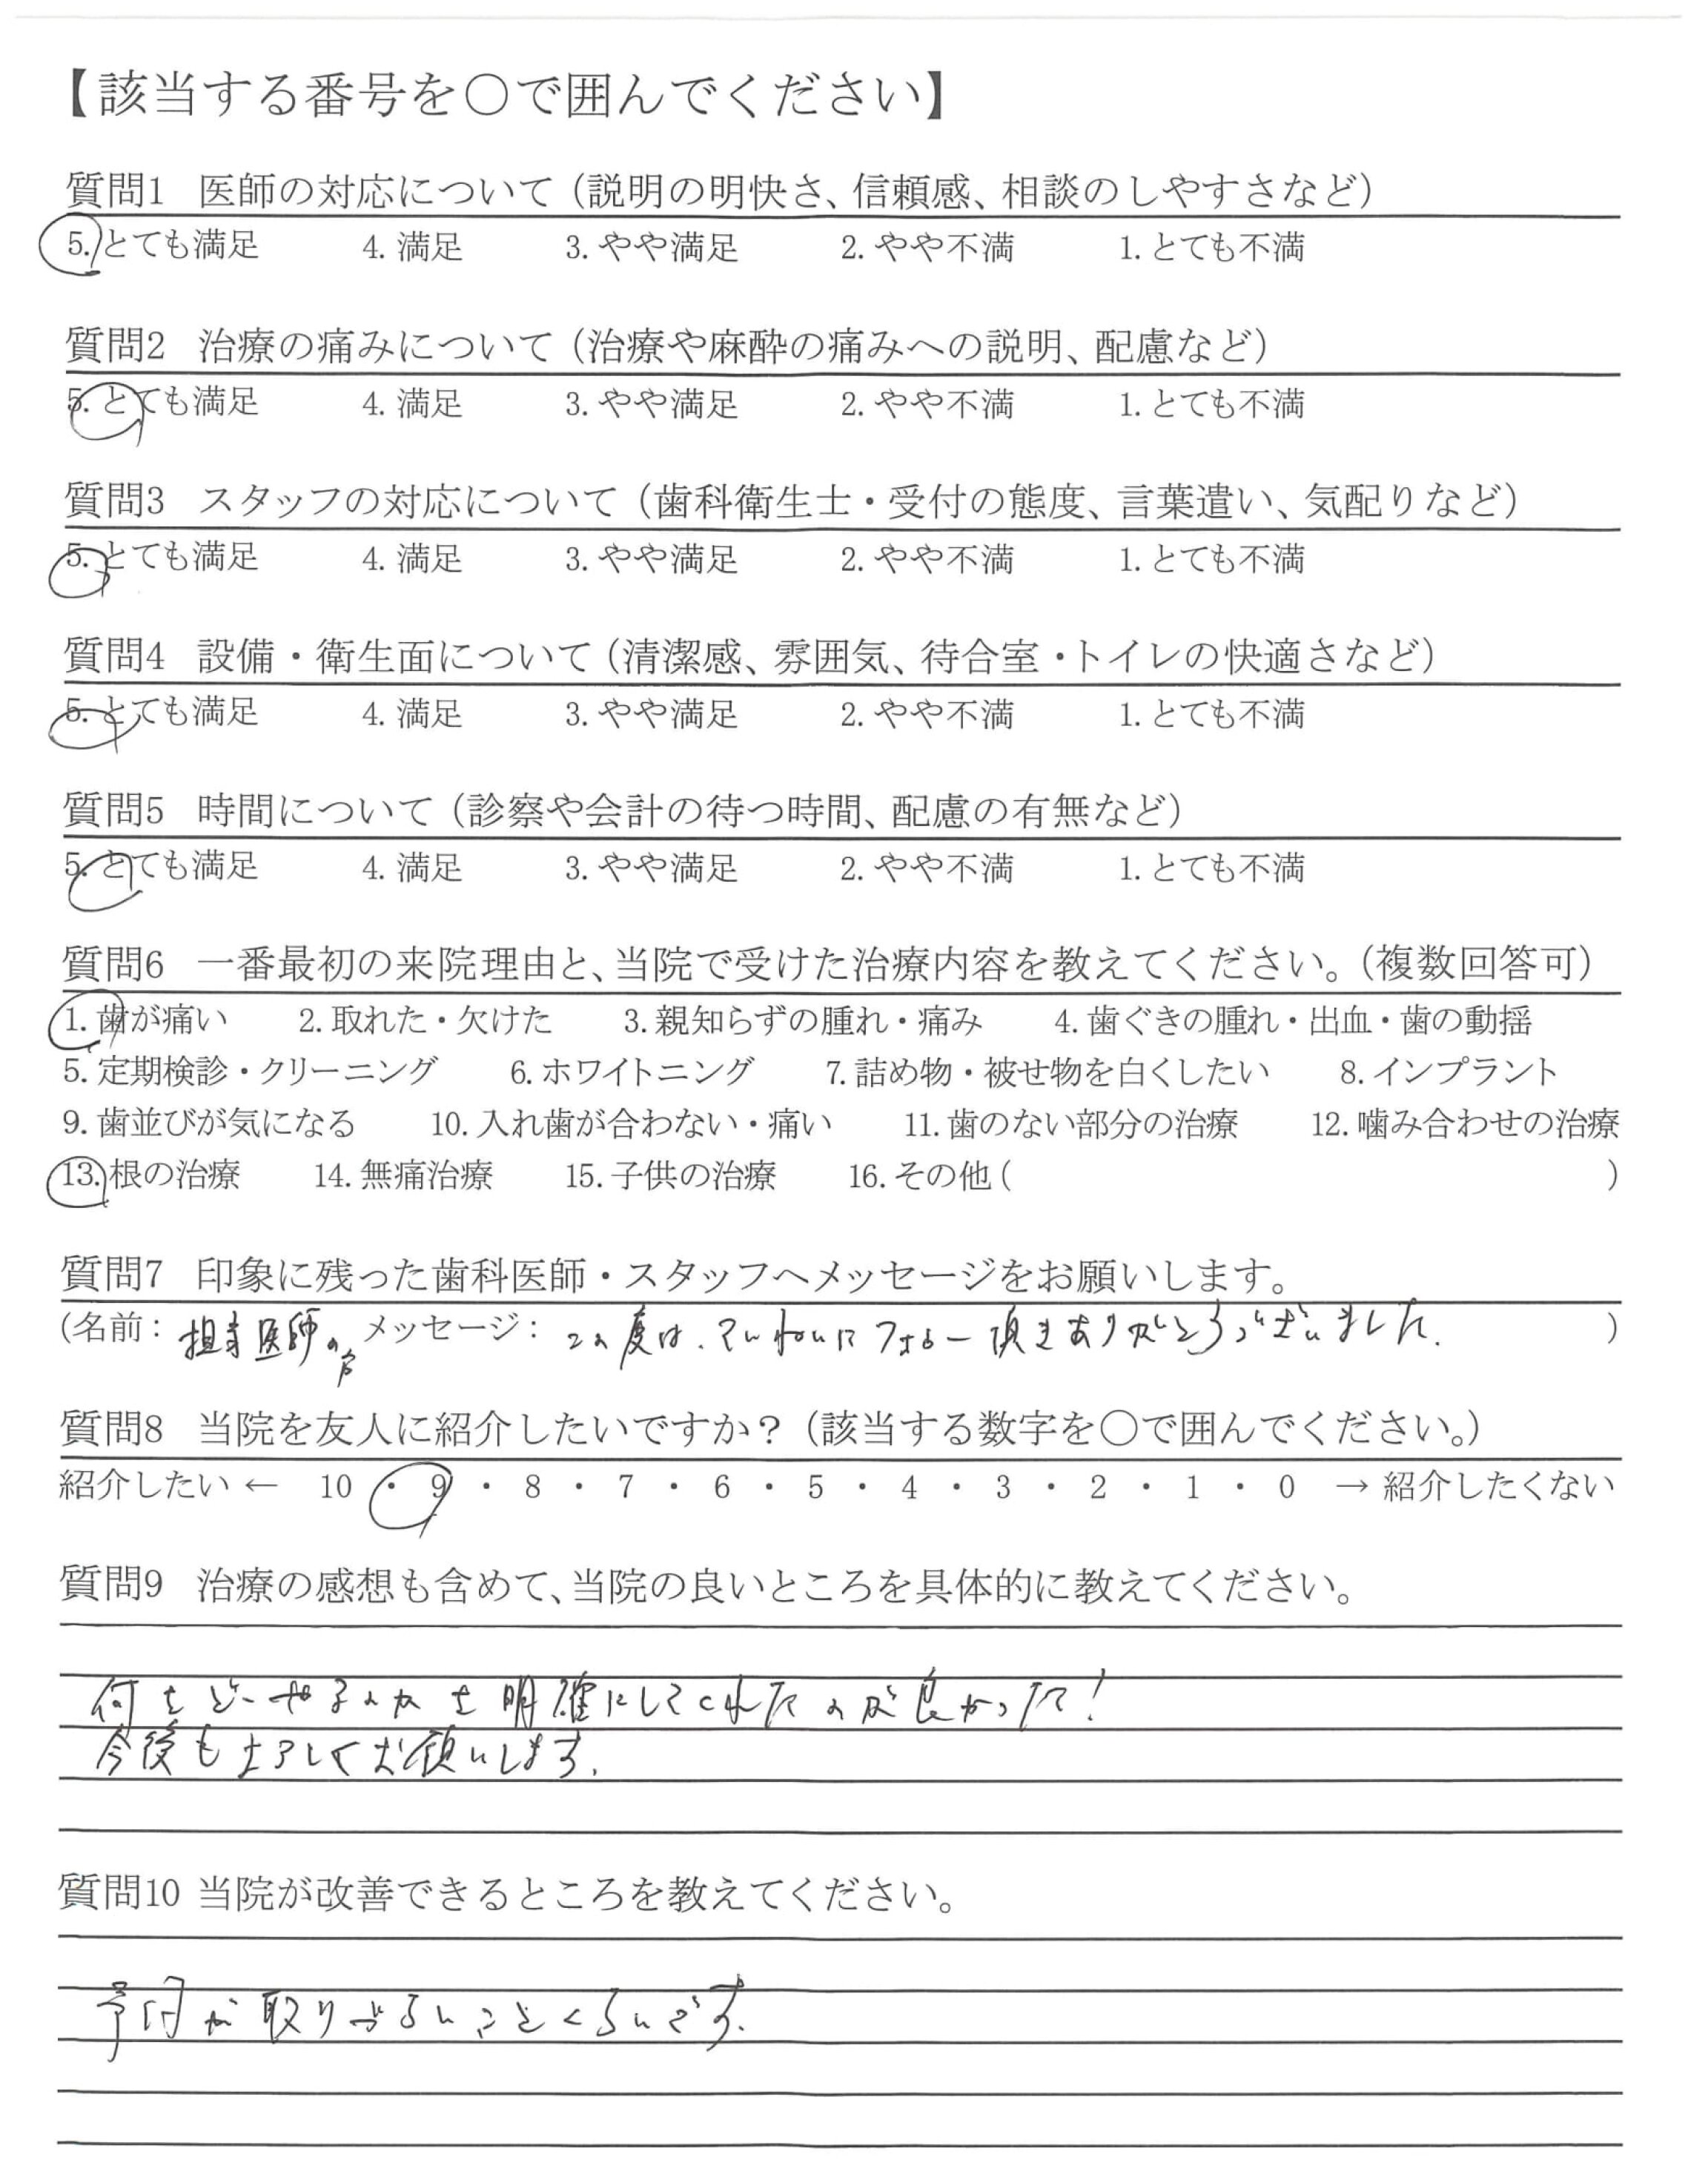 【該当する番号を○で囲んでください】
質問1 医師の対応について（説明の明快さ、信頼感、相談のしやすさなど）
5. とても満足 4. 満足 3. やや満足 2. やや不満 1. とても不満
質問2 治療の痛みについて（治療や麻酔の痛みへの説明、配慮など）
5. とても満足 4. 満足 3. やや満足 2. やや不満 1. とても不満
質問3 スタッフの対応について（歯科衛生士・受付の態度、言葉遣い、気配りなど）
5. とても満足 4. 満足 3. やや満足 2. やや不満 1. とても不満
質問4 設備・衛生面について（清潔感、雰囲気、待合室・トイレの快適さなど）
5. とても満足 4. 満足 3. やや満足 2. やや不満 1. とても不満
質問5 時間について（診察や会計の待つ時間、配慮の有無など）
5. とても満足 4. 満足 3. やや満足 2. やや不満 1. とても不満
質問6 一番最初の来院理由と、当院で受けた治療内容を教えてください。（複数回答可）
1. 歯が痛い 2. 取れた・欠けた 3. 親知らずの腫れ・痛み 4. 歯ぐきの腫れ・出血・歯の動揺
5. 定期検診・クリーニング 6. ホワイトニング 7. 詰め物・被せ物を白くしたい 8. インプラント
9. 歯並びが気になる 10. 入れ歯が合わない・痛い 11. 歯のない部分の治療 12. 噛み合わせの治療
13. 根の治療 14. 無痛治療 15. 子供の治療 16. その他（ ）
質問7 印象に残った歯科医師・スタッフへメッセージをお願いします。
（名前： 担当医師の方 メッセージ： この度は、ていねいにフォロー頂きありがとうございました。 ）
質問8 当院を友人に紹介したいですか？（該当する数字を○で囲んでください。）
紹介したい ← 10 ・ 9 ・ 8 ・ 7 ・ 6 ・ 5 ・ 4 ・ 3 ・ 2 ・ 1 ・ 0 → 紹介したくない
質問9 治療の感想も含めて、当院の良いところを具体的に教えてください。
何をどーやるのかを明確にしてくれたのが良かった！
今後もよろしくお願いします。
質問10 当院が改善できるところを教えてください。
が取りづらいことくらいです。